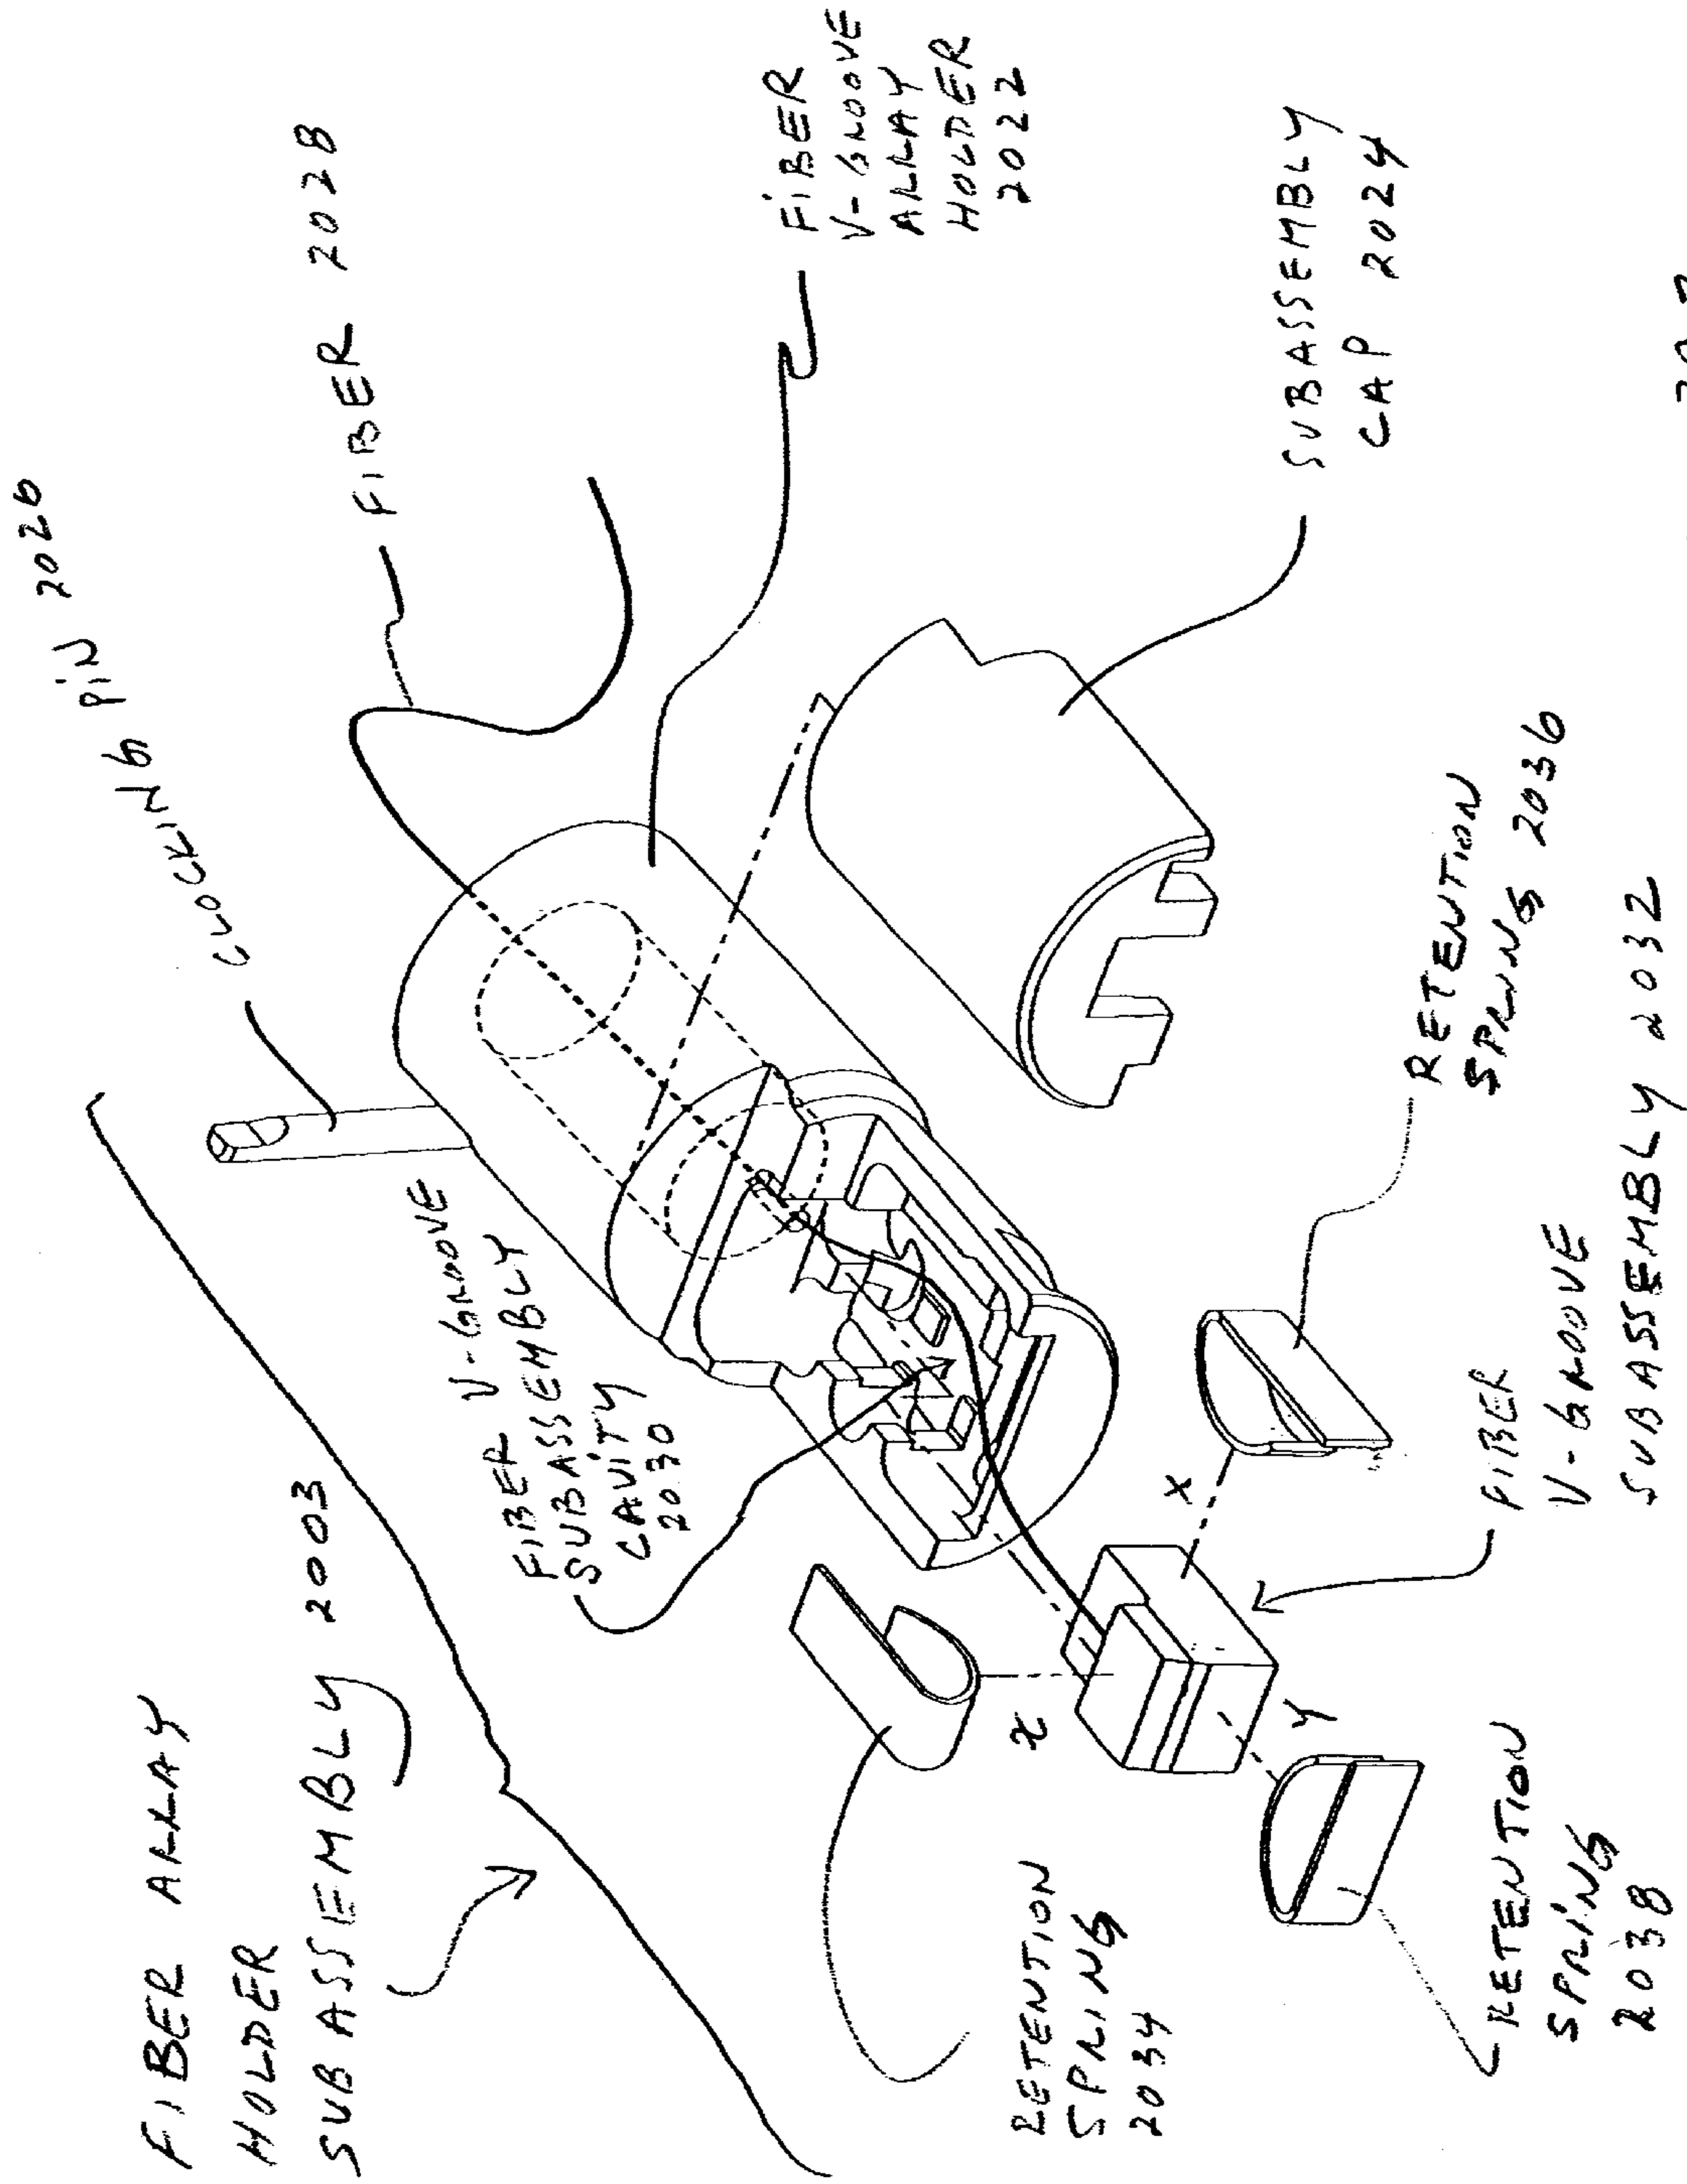 FIBER ARRAY
HOLDER
SUBASSEMBLY 2003
CLOCKING PIN 2026
FIBER 2028
FIBER
V-GROOVE
ARRAY
HOLDER
2022
SUBASSEMBLY
CAP 2024
FIBER V-GROOVE
SUBASSEMBLY
CAVITY
2030
RETENTION
SPRING 2036
FIBER
V-GROOVE
SUBASSEMBLY 2032
RETENTION
SPRING
2034
RETENTION
SPRING
2038
x
X
Y